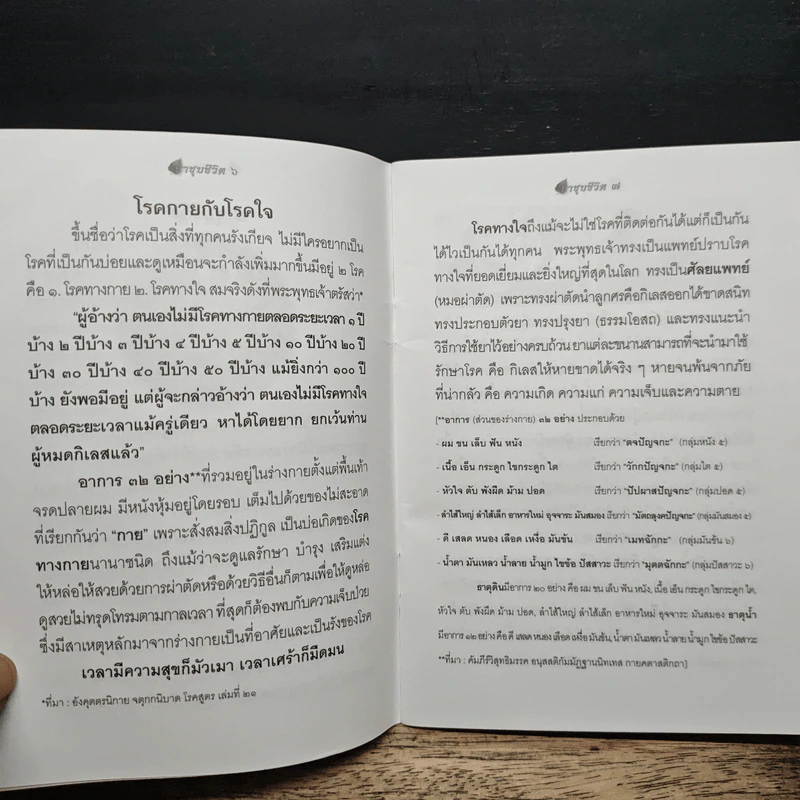 ยาชุบชีวิต ๖
โรคกายกับโรคใจ
ขึ้นชื่อว่าโรคเป็นสิ่งที่ทุกคนรังเกียจ ไม่มีใครอยากเป็น
โรคที่เป็นกันบ่อยและดูเหมือนจะกำลังเพิ่มมากขึ้นมีอยู่ ๒ โรค
คือ ๑. โรคทางกาย ๒. โรคทางใจ สมจริงดังที่พระพุทธเจ้าตรัสว่า*
“ผู้อ้างว่า ตนเองไม่มีโรคทางกายตลอดระยะเวลา ๑ ปี
บ้าง ๒ ปีบ้าง ๓ ปีบ้าง ๔ ปีบ้าง ๕ ปีบ้าง ๑๐ ปีบ้าง ๒๐ ปี
บ้าง ๓๐ ปีบ้าง ๔๐ ปีบ้าง ๕๐ ปีบ้าง แม้ยิ่งกว่า ๑๐๐ ปี
บ้าง ยังพอมีอยู่ แต่ผู้จะกล่าวอ้างว่า ตนเองไม่มีโรคทางใจ
ตลอดระยะเวลาแม้ครู่เดียว หาได้โดยยาก ยกเว้นท่าน
ผู้หมดกิเลสแล้ว”
อาการ ๓๒ อย่าง**ที่รวมอยู่ในร่างกายตั้งแต่พื้นเท้า
จรดปลายผม มีหนังหุ้มอยู่โดยรอบ เต็มไปด้วยของไม่สะอาด
ที่เรียกกันว่า “กาย” เพราะสั่งสมสิ่งปฏิกูล เป็นบ่อเกิดของโรค
ทางกายนานาชนิด ถึงแม้ว่าจะดูแลรักษา บำรุง เสริมแต่ง
ให้หล่อให้สวยด้วยการผ่าตัดหรือด้วยวิธีอื่นก็ตามเพื่อให้ดูหล่อ
ดูสวยไม่ทรุดโทรมตามกาลเวลา ที่สุดก็ต้องพบกับความเจ็บป่วย
ซึ่งมีสาเหตุหลักมาจากร่างกายเป็นที่อาศัยและเป็นรังของโรค
เวลามีความสุขก็มัวเมา เวลาเศร้าก็มืดมน
*ที่มา : อังคุตตรนิกาย จตุกกนิบาต โรคสูตร เล่มที่ ๒๑
ยาชุบชีวิต ๗
โรคทางใจถึงแม้จะไม่ใช่โรคที่ติดต่อกันได้แต่ก็เป็นกัน
ได้ไวเป็นกันได้ทุกคน พระพุทธเจ้าทรงเป็นแพทย์ปราบโรค
ทางใจที่ยอดเยี่ยมและยิ่งใหญ่ที่สุดในโลก ทรงเป็นศัลยแพทย์
(หมอผ่าตัด) เพราะทรงผ่าตัดนำลูกศรคือกิเลสออกได้ขาดสนิท
ทรงประกอบตัวยา ทรงปรุงยา (ธรรมโอสถ) และทรงแนะนำ
วิธีการใช้ยาไว้อย่างครบถ้วน ยาแต่ละขนานสามารถที่จะนำมาใช้
รักษาโรค คือ กิเลสให้หายขาดได้จริง ๆ หายจนพ้นจากภัย
ที่น่ากลัว คือ ความเกิด ความแก่ ความเจ็บและความตาย
[**อาการ (ส่วนของร่างกาย) ๓๒ อย่าง ประกอบด้วย
- ผม ขน เล็บ ฟัน หนัง เรียกว่า “ตจปัญจกะ” (กลุ่มหนัง ๕)
- เนื้อ เอ็น กระดูก ไขกระดูก ไต เรียกว่า “วักกปัญจกะ” (กลุ่มไต ๕)
- หัวใจ ตับ พังผืด ม้าม ปอด เรียกว่า “ปัปผาสปัญจกะ” (กลุ่มปอด ๕)
- ลำไส้ใหญ่ ลำไส้เล็ก อาหารใหม่ อุจจาระ มันสมอง เรียกว่า “มัตถลุงคปัญจกะ” (กลุ่มมันสมอง ๕)
- ดี เสลด หนอง เลือด เหงื่อ มันข้น เรียกว่า “เมทฉักกะ” (กลุ่มมันข้น ๖)
- น้ำตา มันเหลว น้ำลาย น้ำมูก ไขข้อ ปัสสาวะ เรียกว่า “มุตตฉักกะ” (กลุ่มปัสสาวะ ๖)
ธาตุดินมีอาการ ๒๐ อย่าง คือ ผม ขน เล็บ ฟัน หนัง, เนื้อ เอ็น กระดูก ไขกระดูก ไต,
หัวใจ ตับ พังผืด ม้าม ปอด, ลำไส้ใหญ่ ลำไส้เล็ก อาหารใหม่ อุจจาระ มันสมอง ธาตุน้ำ
มีอาการ ๑๒ อย่าง คือ ดี เสลด หนอง เลือด เหงื่อ มันข้น, น้ำตา มันเหลว น้ำลาย น้ำมูก ไขข้อ ปัสสาวะ
**ที่มา : คัมภีร์วิสุทธิมรรค อนุสสติกัมมัฏฐานนิทเทส กายคตาสติกถา]